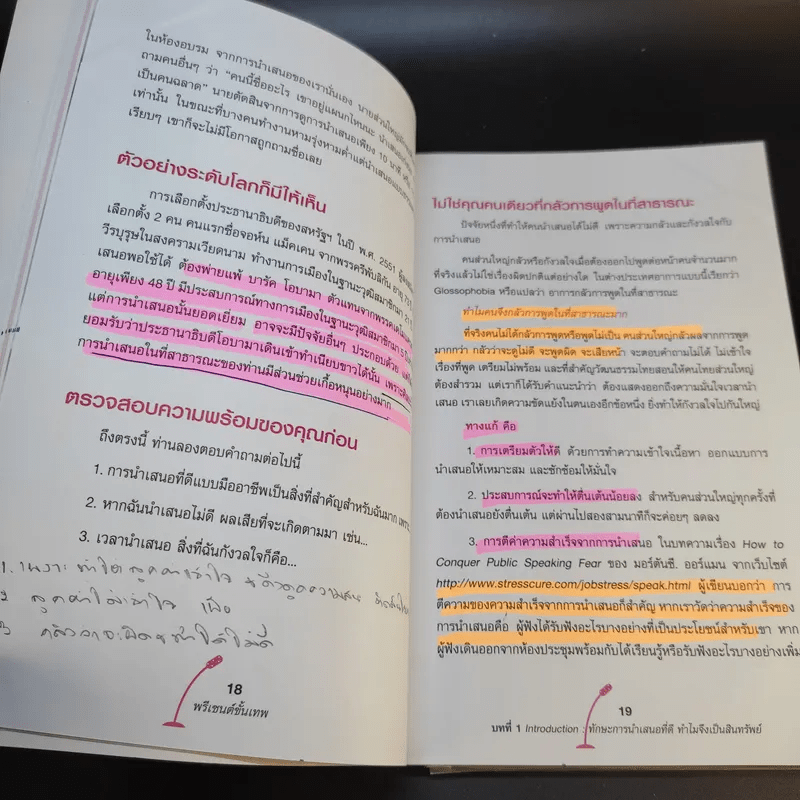 ในห้องอบรม จากการนำเสนอของเรานั่นเอง นายส่วนใหญ่มัก
ถามคนอื่นๆ ว่า "คนนี้ชื่ออะไร เขาอยู่แผนกไหนนะ นำเสนอ
เป็นคนฉลาด" นายตัดสินจากการดูการนำเสนอเพียง 10 นาที
เท่านั้น ในขณะที่บางคนทำงานหามรุ่งหามค่ำแต่นำเสนอ
เรียบๆ เขาก็จะไม่มีโอกาสถูกถามชื่อเลย
ตัวอย่างระดับโลกก็มีให้เห็น
การเลือกตั้งประธานาธิบดีของสหรัฐฯ ในปี พ.ศ. 2551
เลือกตั้ง 2 คน คนแรกชื่อจอห์น แม็คเคน จากพรรครีพับลิกัน อายุ
วีรบุรุษในสงครามเวียดนาม ทำงานการเมืองในฐานะวุฒิสมาชิกมา
เสนอพอใช้ได้ ต้องพ่ายแพ้ บารัค โอบามา ตัวแทนจากพรรค
อายุเพียง 48 ปี มีประสบการณ์ทางการเมืองในฐานะวุฒิสมาชิก
แต่การนำเสนอนั้นยอดเยี่ยม อาจจะมีปัจจัยอื่นๆ ประกอบด้วย
ยอมรับว่าประธานาธิบดีโอบามาเดินเข้าทำเนียบขาวได้นั้น เพราะ
การนำเสนอในที่สาธารณะของท่านมีส่วนช่วยเกื้อหนุนอย่างมาก
ตรวจสอบความพร้อมของคุณก่อน
ถึงตรงนี้ ท่านลองตอบคำถามต่อไปนี้
1. การนำเสนอที่ดีแบบมืออาชีพเป็นสิ่งที่สำคัญสำหรับฉันมาก เพราะ
2. หากฉันนำเสนอไม่ดี ผลเสียที่จะเกิดตามมา เช่น...
3. เวลานำเสนอ สิ่งที่ฉันกังวลใจก็คือ...
1. เพราะ ทำให้ลูกค้าเข้าใจ
2 ลูกค้าไม่เข้าใจ เบื่อ
3
18
พรีเซนต์ขั้นเทพ
ไม่ใช่คุณคนเดียวที่กลัวการพูดในที่สาธารณะ
ปัจจัยหนึ่งที่ทำให้คนนำเสนอได้ไม่ดี เพราะความกลัวและกังวลใจกับ
การนำเสนอ
คนส่วนใหญ่กลัวหรือกังวลใจเมื่อต้องออกไปพูดต่อหน้าคนจำนวนมาก
ที่จริงแล้วไม่ใช่เรื่องผิดปกติแต่อย่างใด ในต่างประเทศอาการแบบนี้เรียกว่า
Glossophobia หรือแปลว่า อาการกลัวการพูดในที่สาธารณะ
ทำไมคนจึงกลัวการพูดในที่สาธารณะมาก
ที่จริงคนไม่ได้กลัวการพูดหรือพูดไม่เป็น คนส่วนใหญ่กลัวผลจากการพูด
มากกว่า กลัวว่าจะดูไม่ดี จะพูดผิด จะเสียหน้า จะตอบคำถามไม่ได้ ไม่เข้าใจ
เรื่องที่พูด เตรียมไม่พร้อม และที่สำคัญวัฒนธรรมไทยสอนให้คนไทยส่วนใหญ่
ต้องสำรวม แต่เราก็ได้รับคำแนะนำว่า ต้องแสดงออกถึงความมั่นใจเวลานำ
เสนอ เราเลยเกิดความขัดแย้งในตนเองอีกข้อหนึ่ง ยิ่งทำให้กังวลใจไปกันใหญ่
ทางแก้ คือ
1. การเตรียมตัวให้ดี ด้วยการทำความเข้าใจเนื้อหา ออกแบบการ
นำเสนอให้เหมาะสม และซักซ้อมให้มั่นใจ
2. ประสบการณ์จะทำให้ตื่นเต้นน้อยลง สำหรับคนส่วนใหญ่ทุกครั้งที่
ต้องนำเสนอยังตื่นเต้น แต่ผ่านไปสองสามนาทีก็จะค่อยๆ ลดลง
3. การตีค่าความสำเร็จจากการนำเสนอ ในบทความเรื่อง How to
Conquer Public Speaking Fear ของ มอร์ตันซี. ออร์แมน จากเว็บไซต์
http://www.stresscure.com/jobstress/speak.html ผู้เขียนบอกว่า การ
ตีความของความสำเร็จจากการนำเสนอก็สำคัญ หากเราวัดว่าความสำเร็จของ
การนำเสนอคือ ผู้ฟังได้รับฟังอะไรบางอย่างที่เป็นประโยชน์สำหรับเขา หาก
ผู้ฟังเดินออกจากห้องประชุมพร้อมกับได้เรียนรู้หรือรับฟังอะไรบางอย่างเพิ่ม
19
บทที่ 1 Introduction : ทักษะการนำเสนอที่ดี ทำไมจึงเป็นสินทรัพย์